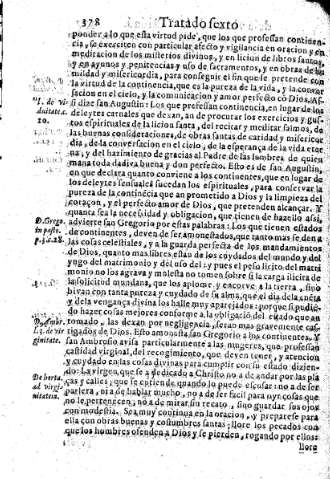 378 Tratado sexto
ponder a lo que esta virtud pide, que los que professan continen-
cia, se exerciten con particular afecto y vigilancia en oracion y en
meditacion de los misterios divinos, y en licion de libros santos,
y en ayunos y penitencias y uso de sacramentos, y en obras de hu-
mildad y misericordia, para conseguir el fin que se pretende con
la virtud de la continencia, que es la pureza de la vida, y la conver
sacion en el cielo, y la comunicacion y amor perfecto cõ Dios. Assi
si dize san Augustin: Los que professan continencia, en lugar de los
deleytes carnales que dexan, an de procurar los exercicios y gus-
tos espirituales de la licion santa, del recitar y meditar salmos, de
las buenas consideraciones, de obras santas de caridad y misericor
dia, de la conversacion en el cielo, de la esperança de la vida eter
na, y del hazimiento de gracias al Padre de las lumbres de quien
mana toda dadiva buena y don perfecto. Esto es de san Augustin,
en que declara quanto conviene a los continentes, que en lugar de
los deleytes sensuales sucedan los espirituales, para conservar la
pureza de la continẽcia que an prometido a Dios y la limpieza del
coraçon, y el perfecto amor de Dios, que pretenden alcançar. Y
quanta sea la necessidad y obligacion, que tienen de hazello assi,
advierte san Gregorio por estas palabras: Los que tienen estados
de continentes, deven de ser amonestados, que tanto mas se den a
las cosas celestiales, y a la guarda perfeta de los mandamientos
de Dios, quanto mas libres estan de los cuydados del mundo y del
yugo del matrimonio y del uso del: y pues el peso licito del matri
monio no los agrava y molesta no tomen sobre si la carga ilicita de
la solicitud mundana, que los aplome y encorve a la tierra, sino
bivan con tanta pureza y cuydado de su alma, que el dia de la cuẽta
y de la vengança divina los halle muy aparejados: porque si pudiẽ
do hazer cosas mejores conforme a la obligacion del estado que an
tomado, las dexan por negligencia, seran mas gravemente cas-
tigados de Dios. Esto amonesta san Gregorio a los continentes. Y
san Ambrosio avisa particularmente a las mugeres, que professan
castidad virginal, del recogimiento, que deven tener, y atencion
y cuydado en las cosas divinas para cumplir con su estado dizien-
do: La virgen que se a dedicado a Christo no a de andar por las pla
ças y calles; que se entiende quando lo puede escusar: no a de ser
parlera, ni a de hablar mucho, no a de ser facil para oyr cosas que
no le pertenecen, no a de mirar sin recato, sino guardar sus ojos
con modestia. Sea muy continua en la oracion, y preparese para
ella con obras buenas y costumbres santas: llore los pecados con
que los hombres ofenden a Dios y se pierden, rogando por ellos:
llore